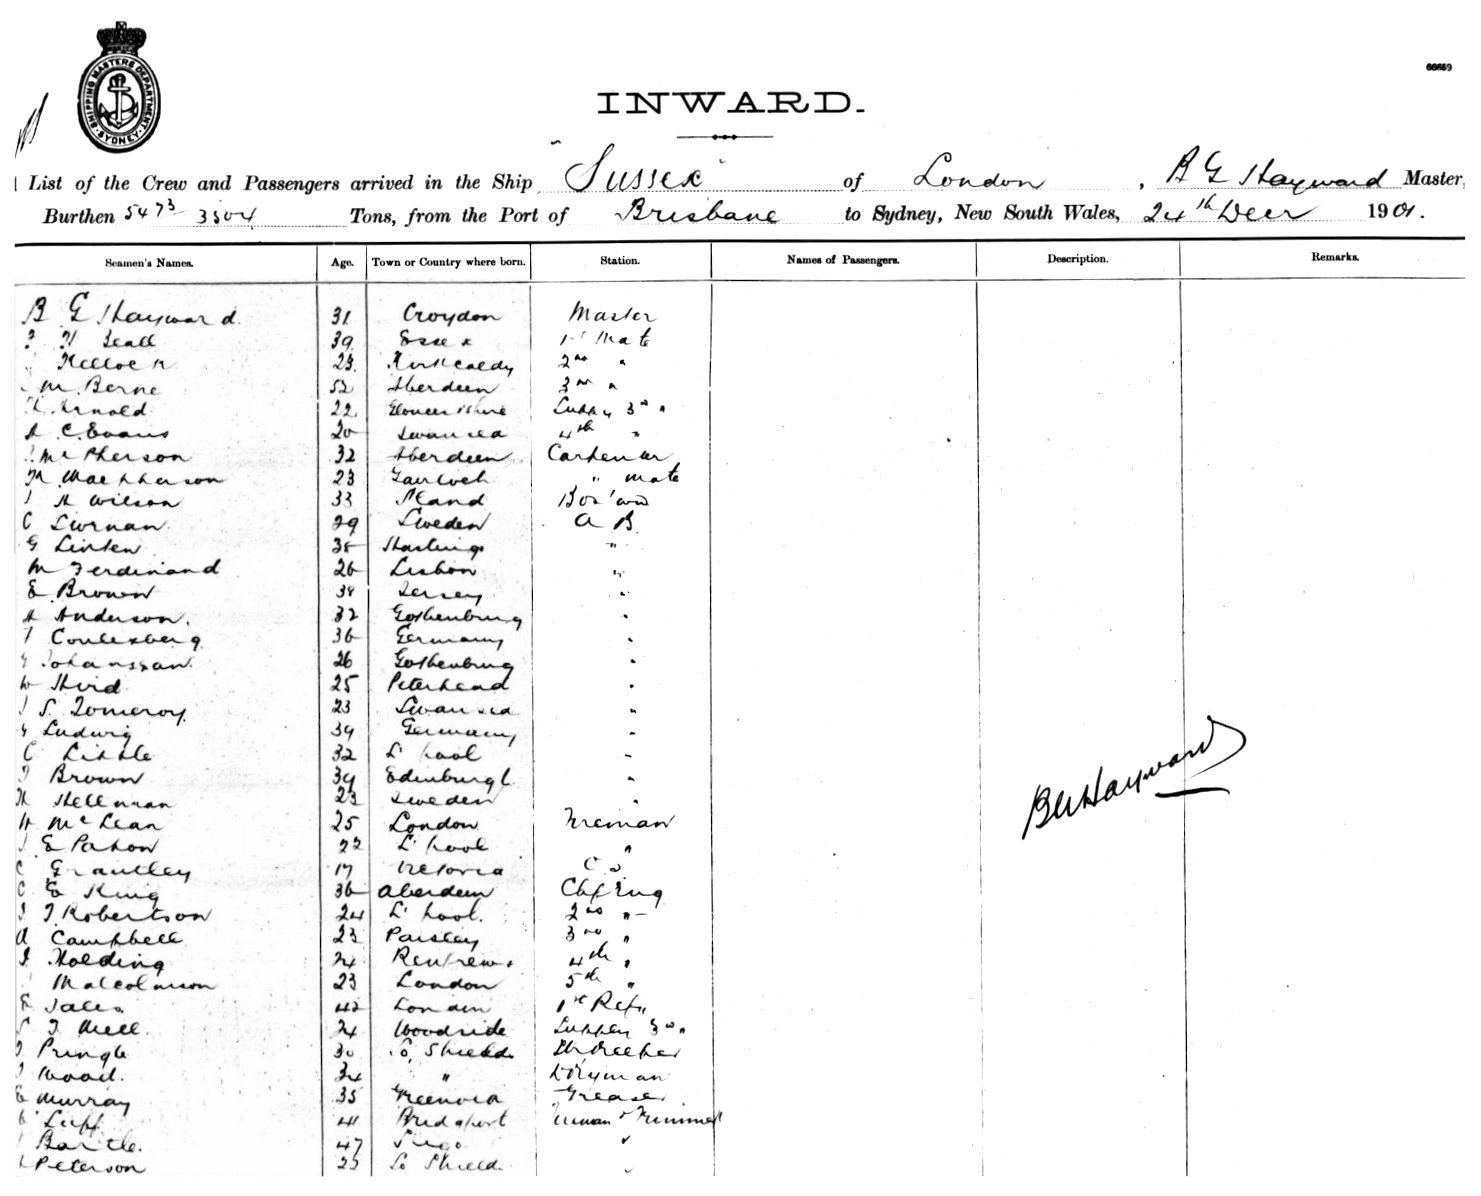 66659
SHIPPING MASTERS DEPARTMENT
SYDNEY
INWARD.
List of the Crew and Passengers arrived in the Ship "Sussex" of London, B G Hayward Master,
Burthen 5473 3504 Tons, from the Port of Brisbane to Sydney, New South Wales, 24th Decr 1901.
Seamen's Names. Age. Town or Country where born. Station. Names of Passengers. Description. Remarks.
B G Hayward 31 Croydon Master
39 Essex 1st Mate
23 Kirkcaldy 2nd "
M Berne 52 Aberdeen 3rd "
Arnold 22 3rd "
A C. Evans 20 Swansea 4th "
McPherson 32 Aberdeen Carpenter
Macpherson 23 " mate
A Wilson 33 Bos'wn
C 29 Sweden A B.
G Linten 38 Hastings "
M Ferdinand 26 Lisbon "
E Brown 39 Jersey "
A Anderson. 32 Gothenburg "
36 Germany "
Johanssan 26 Gothenburg "
25 Peterhead "
S. Pomeroy 23 Swansea "
Ludwig 39 Germany "
C Little 32 L'pool "
Brown 39 Edinburgh "
Hellman 23 Sweden "
McLean 25 London Fireman
E Paton 22 L'pool "
C Grantley 17 Victoria
C E King 36 Aberdeen Chf Eng
J Robertson 24 L'pool. 2nd "
A Campbell 23 Paisley 3rd "
Holding 24 Renfrew 4th "
Malcolmson 23 London 5th "
42 London 1st Refr
24 Woodside 3rd "
Pringle 30 So. Shields
Wood. 34 "
E Murray 35 Greaser
Luff 41 Bridport Fireman & Trimmer
Bartle. 47 "
Peterson 23 So Shield "
B G Hayward